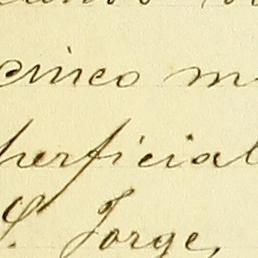 cinco m
perficial
S. Jorge,